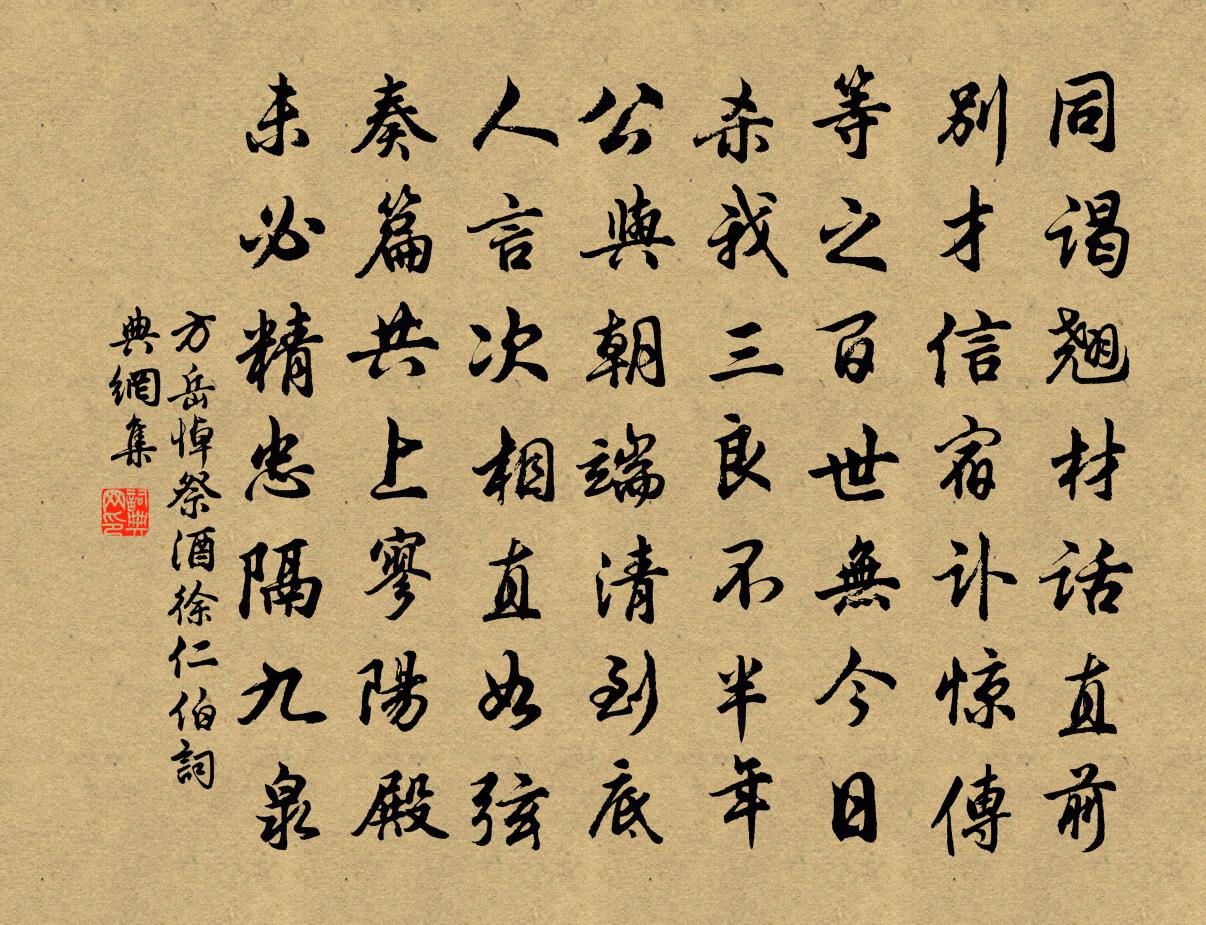 同谒翘材话直前
别才信宿讣惊傳
等之百世無今日
杀我三良不半年
公與朝端清到底
人言次相直如弦
奏篇共上寥陽殿
未必精忠隔九泉
方岳悼祭酒徐仁伯詞
典網集
詞典网印